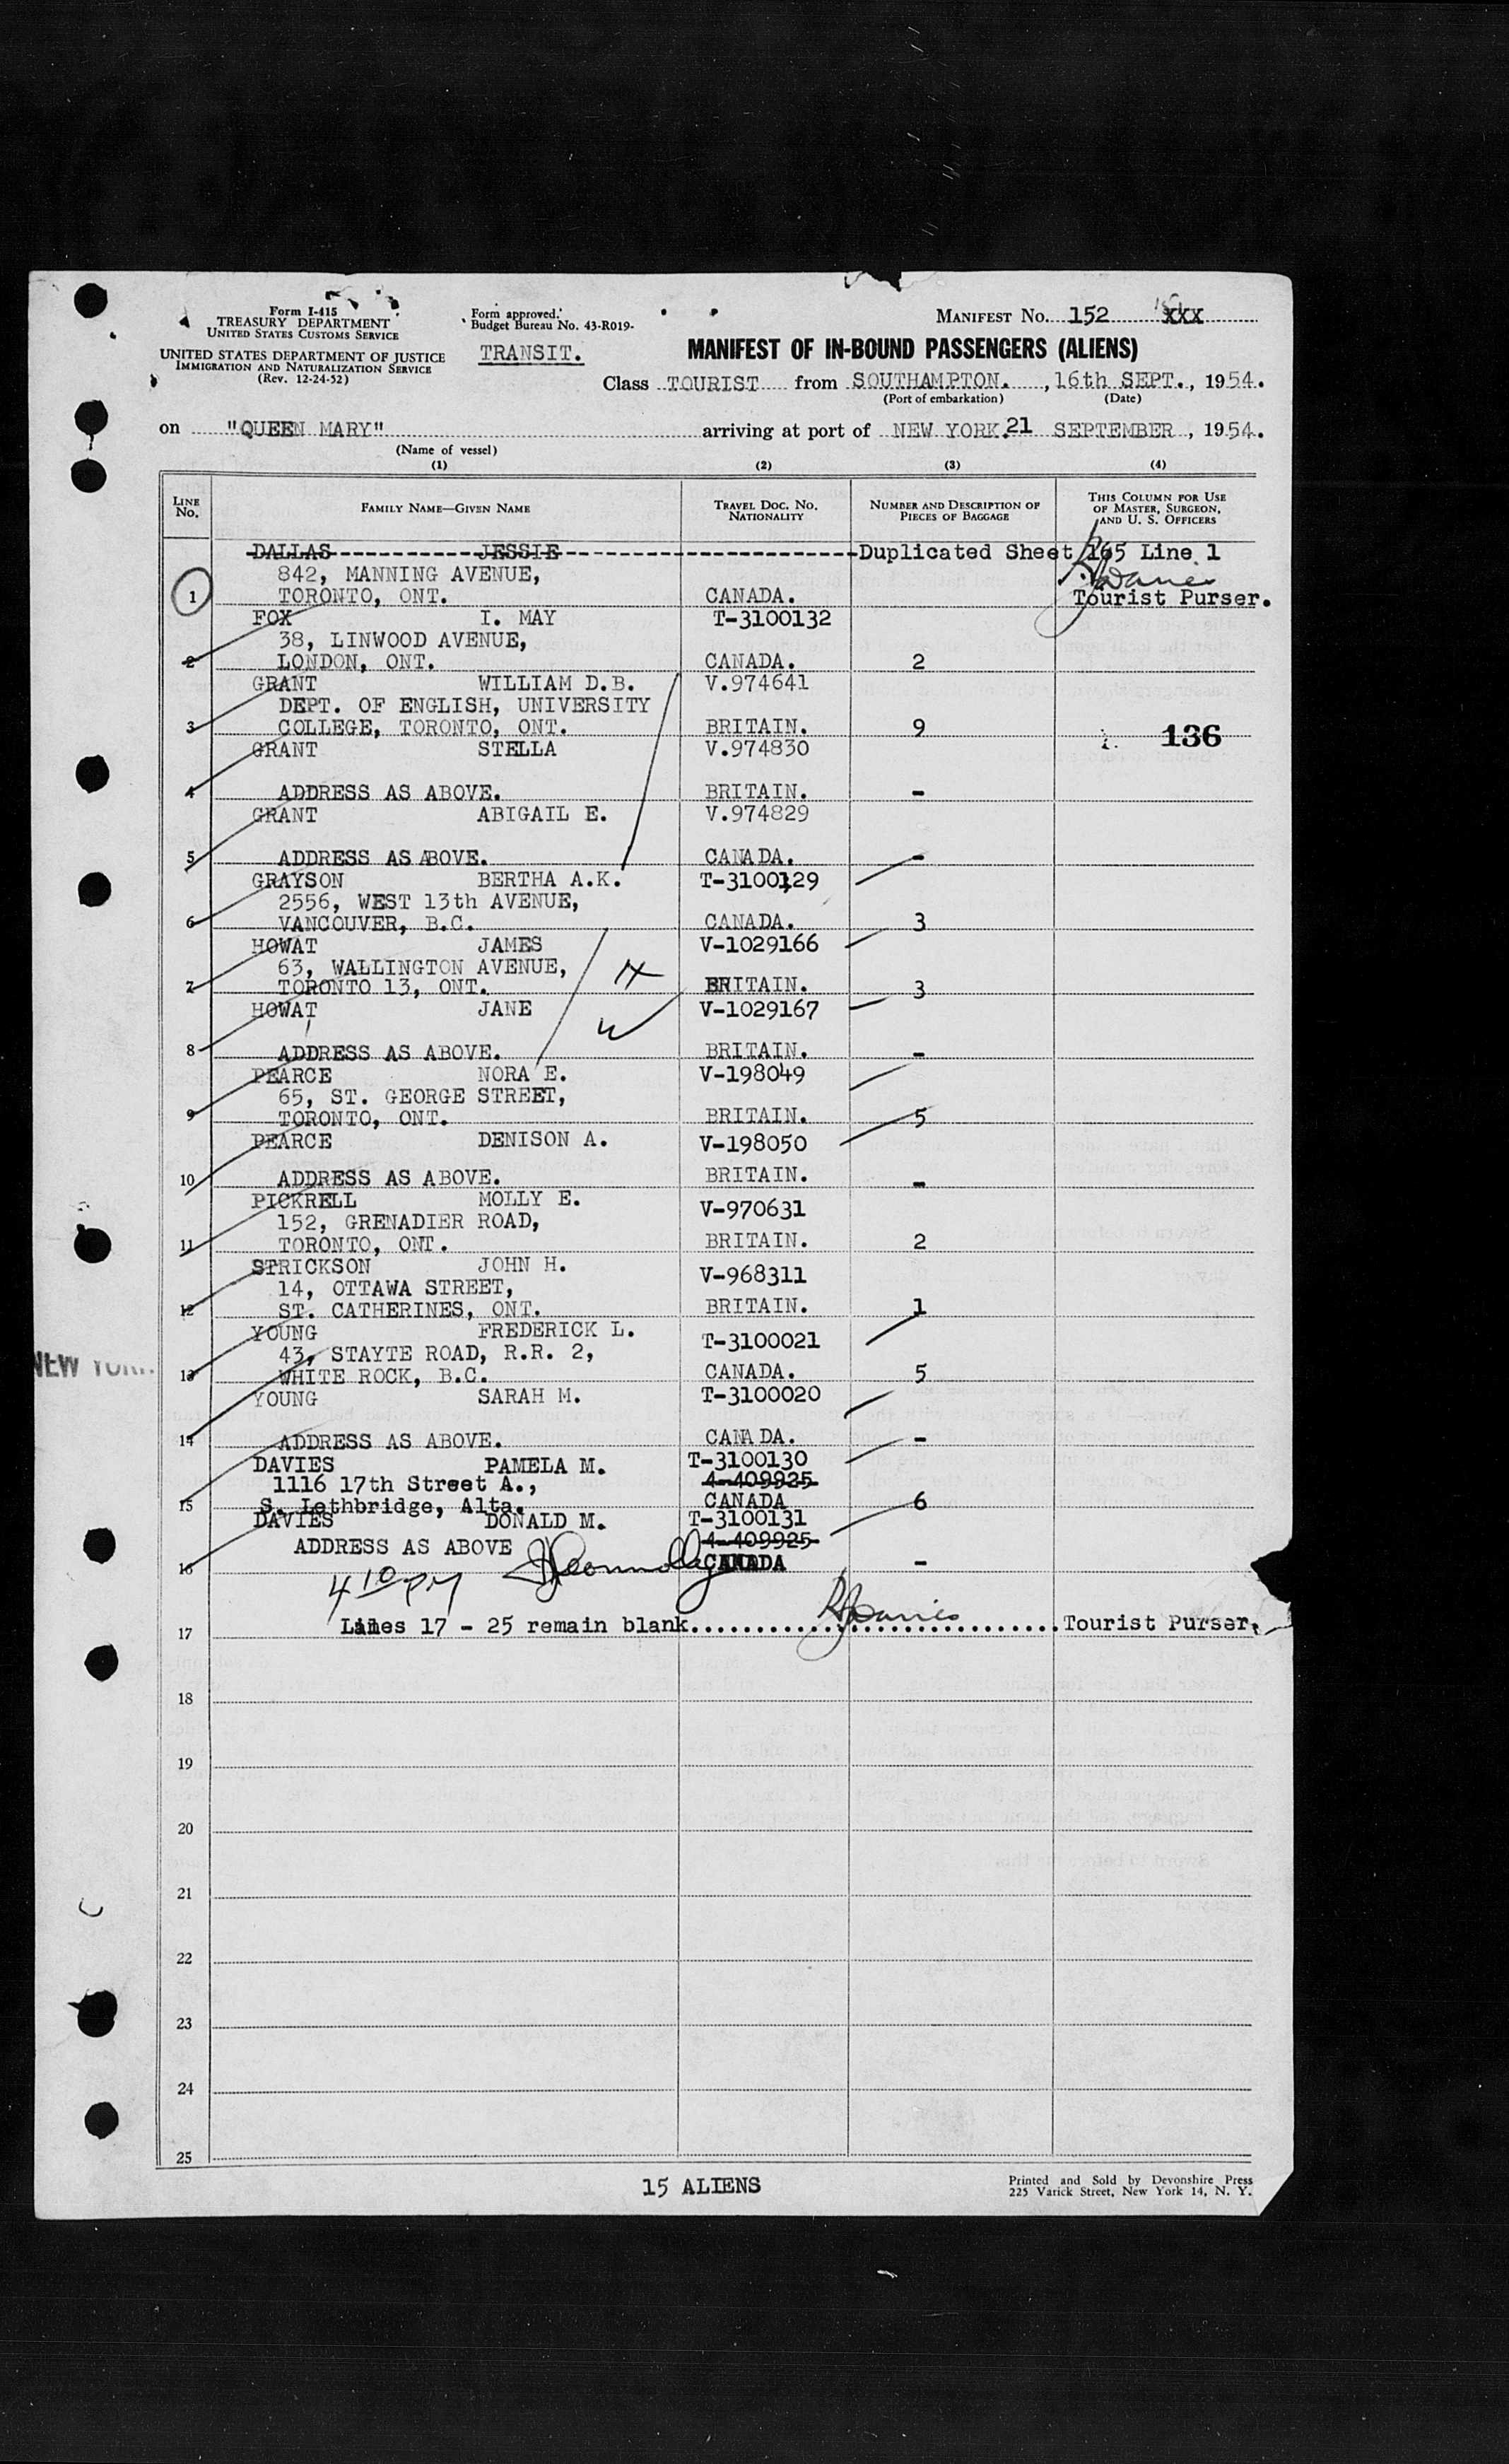 Form I-415
TREASURY DEPARTMENT
UNITED STATES CUSTOMS SERVICE
UNITED STATES DEPARTMENT OF JUSTICE
IMMIGRATION AND NATURALIZATION SERVICE
(Rev. 12-24-52)
Form approved.
Budget Bureau No. 43-R019-
TRANSIT.
MANIFEST No. 152 XXX
MANIFEST OF IN-BOUND PASSENGERS (ALIENS)
Class TOURIST from SOUTHAMPTON. , 16th SEPT., 1954.
(Port of embarkation) (Date)
on "QUEEN MARY" arriving at port of NEW YORK. 21 SEPTEMBER , 1954.
(Name of vessel)
(1) (2) (3) (4)
LINE No. FAMILY NAME—GIVEN NAME TRAVEL DOC. NO. NATIONALITY NUMBER AND DESCRIPTION OF PIECES OF BAGGAGE THIS COLUMN FOR USE OF MASTER, SURGEON, AND U. S. OFFICERS
DALLAS JESSIE Duplicated Sheet 165 Line 1
842, MANNING AVENUE, RJDavies
1 TORONTO, ONT. CANADA. Tourist Purser.
FOX I. MAY T-3100132
38, LINWOOD AVENUE,
2 LONDON, ONT. CANADA. 2
GRANT WILLIAM D.B. V.974641
DEPT. OF ENGLISH, UNIVERSITY
3 COLLEGE, TORONTO, ONT. BRITAIN. 9 136
GRANT STELLA V.974830
4 ADDRESS AS ABOVE. BRITAIN. -
GRANT ABIGAIL E. V.974829
5 ADDRESS AS ABOVE. CANADA. -
GRAYSON BERTHA A.K. T-3100129
2556, WEST 13th AVENUE,
6 VANCOUVER, B.C. CANADA. 3
HOWAT JAMES V-1029166
63, WALLINGTON AVENUE,
7 TORONTO 13, ONT. BRITAIN. 3
HOWAT JANE V-1029167
8 ADDRESS AS ABOVE. BRITAIN. -
PEARCE NORA E. V-198049
65, ST. GEORGE STREET,
9 TORONTO, ONT. BRITAIN. 5
PEARCE DENISON A. V-198050
10 ADDRESS AS ABOVE. BRITAIN. -
PICKRELL MOLLY E. V-970631
152, GRENADIER ROAD,
11 TORONTO, ONT. BRITAIN. 2
STRICKSON JOHN H. V-968311
14, OTTAWA STREET,
12 ST. CATHERINES, ONT. BRITAIN. 1
YOUNG FREDERICK L. T-3100021
43, STAYTE ROAD, R.R. 2,
13 WHITE ROCK, B.C. CANADA. 5
NEW YORK
YOUNG SARAH M. T-3100020
14 ADDRESS AS ABOVE. CANADA. -
DAVIES PAMELA M. T-3100130
1116 17th Street A., 4-409925
15 S. Lethbridge, Alta. CANADA 6
DAVIES DONALD M. T-3100131
ADDRESS AS ABOVE 4-409925
16 CANADA -
4 10 PM
17 Lines 17 - 25 remain blank. RJDavies Tourist Purser.
18
19
20
21
22
23
24
25
15 ALIENS
Printed and Sold by Devonshire Press
225 Varick Street, New York 14, N. Y.